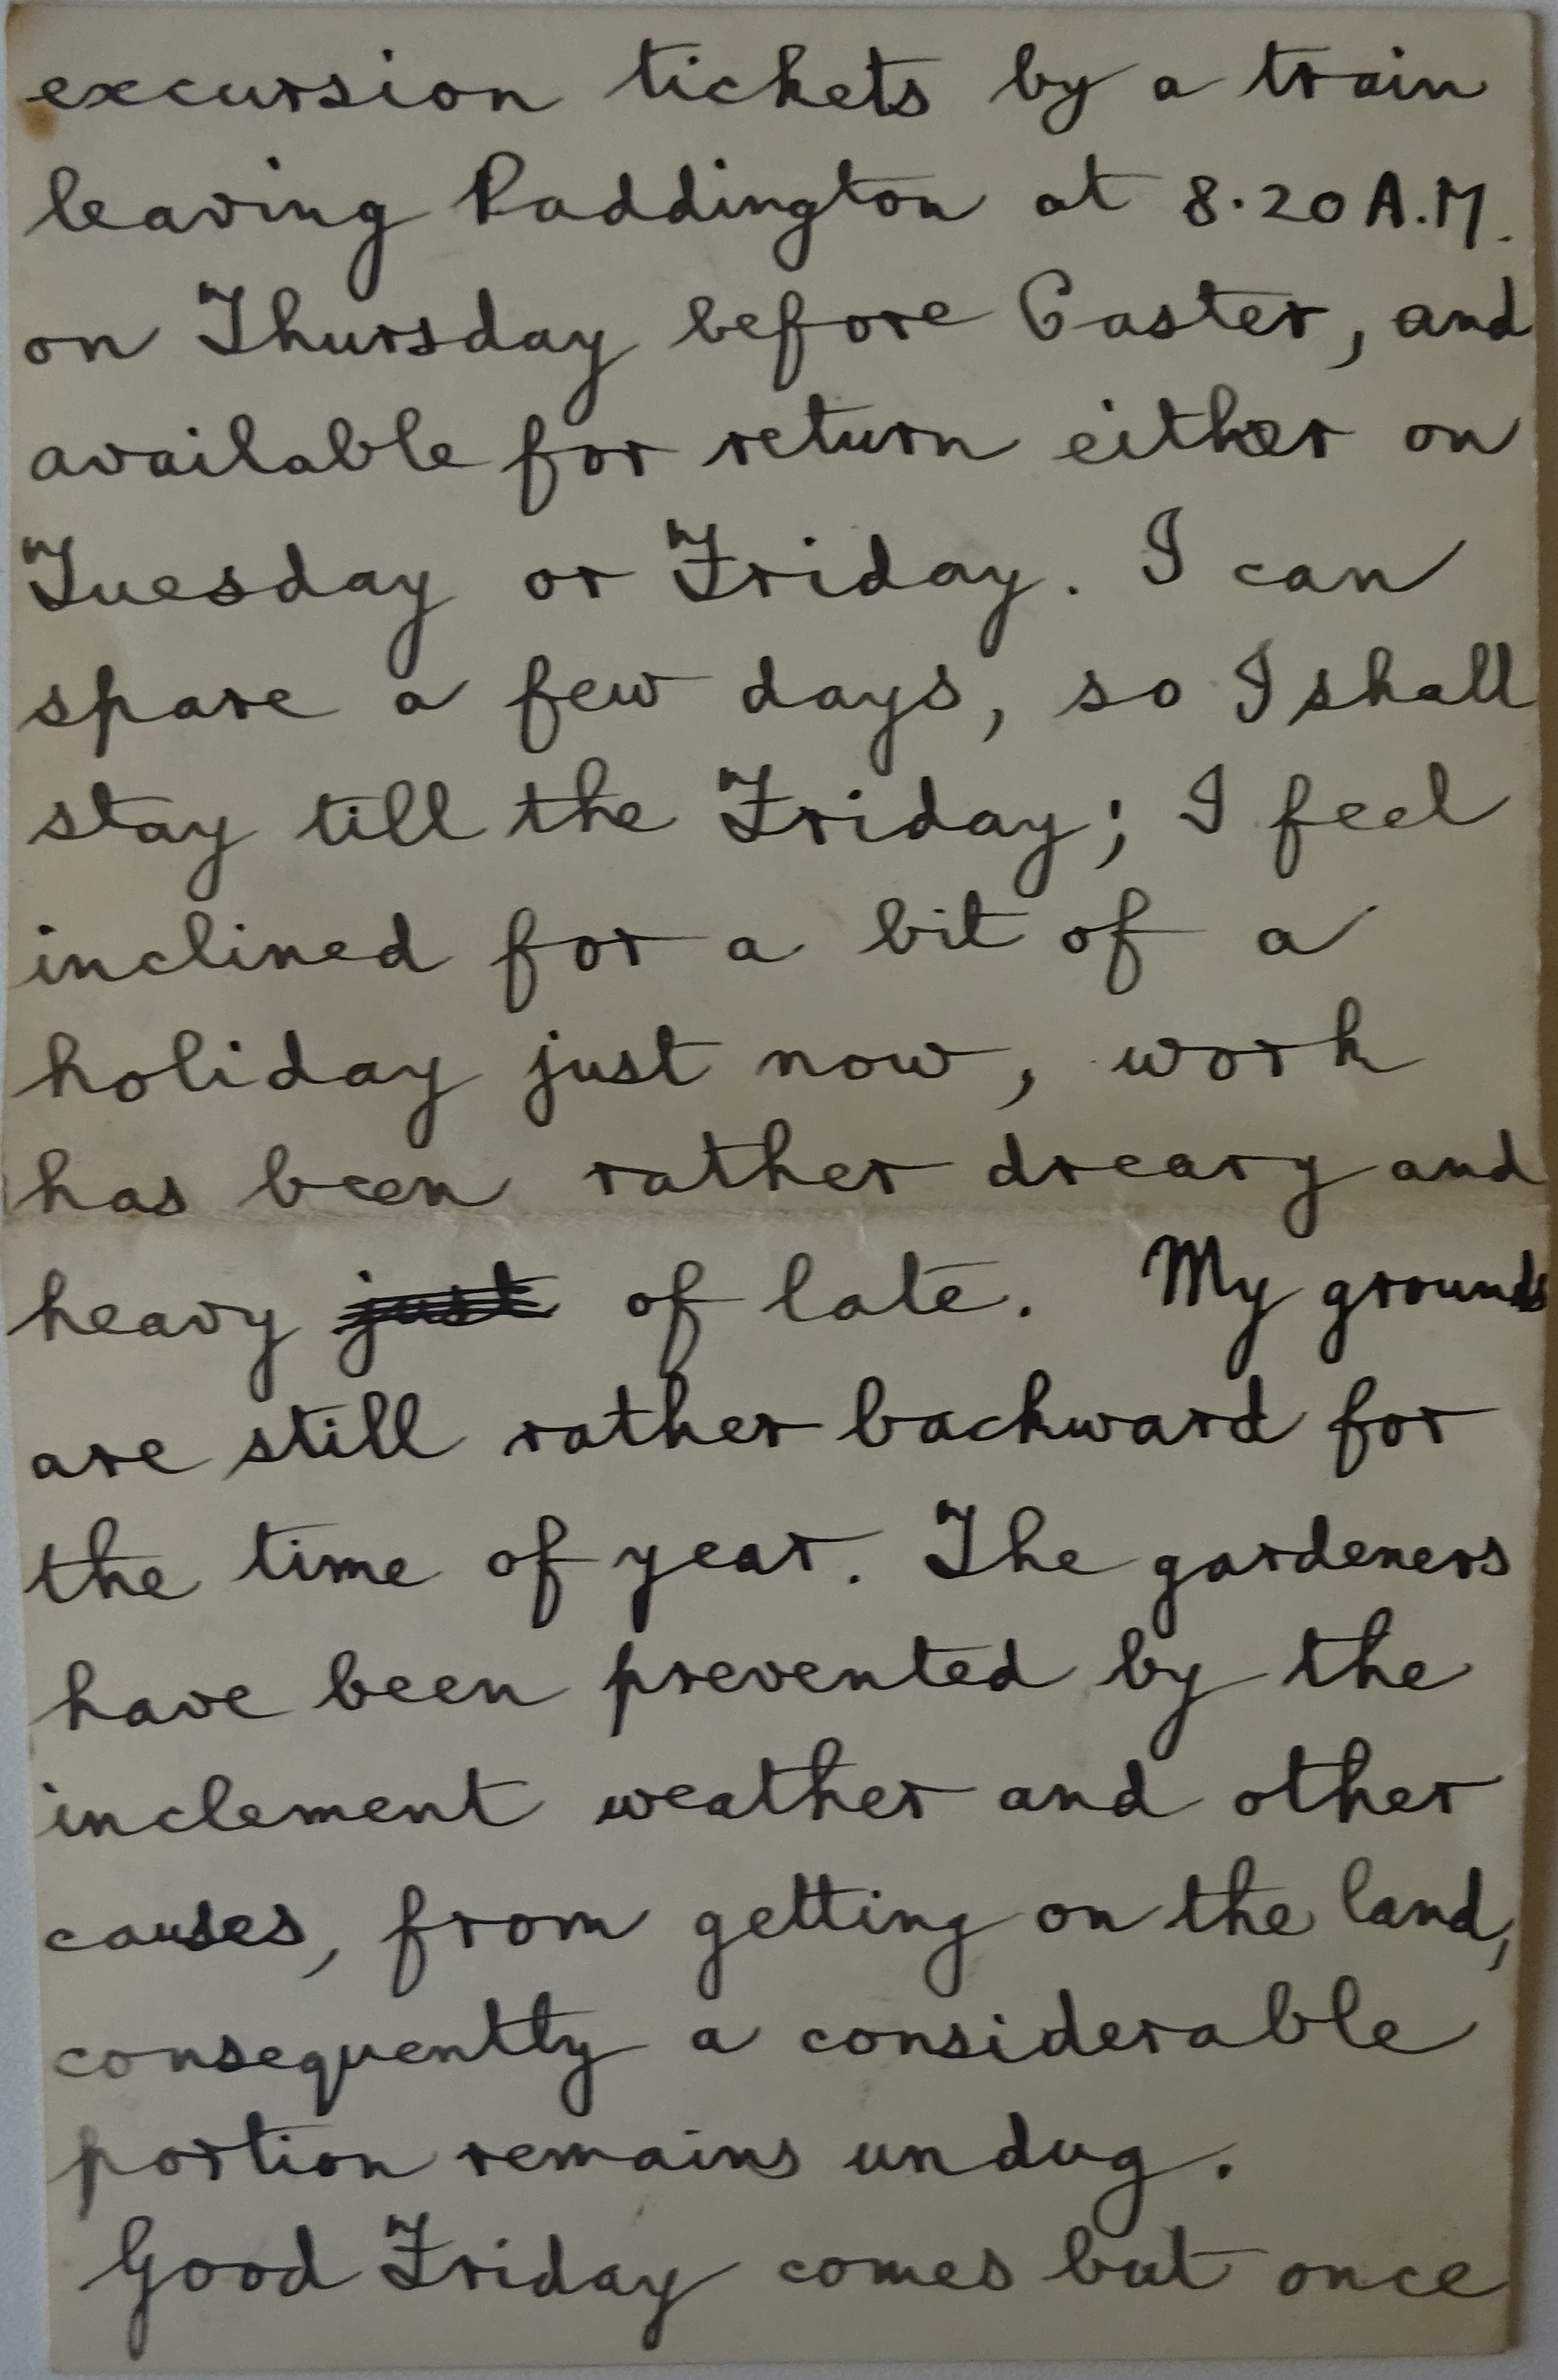 excursion tickets by a train
leaving Paddington at 8.20 A.M.
on Thursday before Easter, and
available for return either on
Tuesday or Friday. I can
spare a few days, so I shall
stay till the Friday; I feel
inclined for a bit of a
holiday just now, work
has been rather dreary and
heavy just of late. My grounds
are still rather backward for
the time of year. The gardeners
have been prevented by the
inclement weather and other
causes, from getting on the land,
consequently a considerable
portion remains undug.
Good Friday comes but once